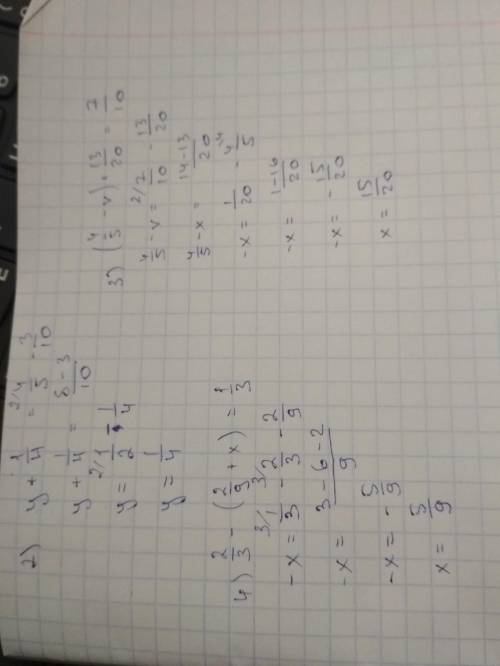 2) y + 1/4 = 2/ 4/5 - 3/10
y + 1/4 = 8-3/10
y = 2/ 1/2 - 1/4
y = 1/4
3) (4/5 - v) + 13/20 = 7/10
4/5 - v = 2/ 7/10 - 13/20
4/5 - x = 14-13/20
-x = 1/20 - 4/ 4/5
-x = 1-16/20
-x = - 15/20
x = 15/20
4) 2/3 - (2/9 + x) = 1/3
-x = 3/ 1/3 - 3/ 2/3 - 2/9
-x = 3-(6-2/9
-x = - 5/9
x = 5/9